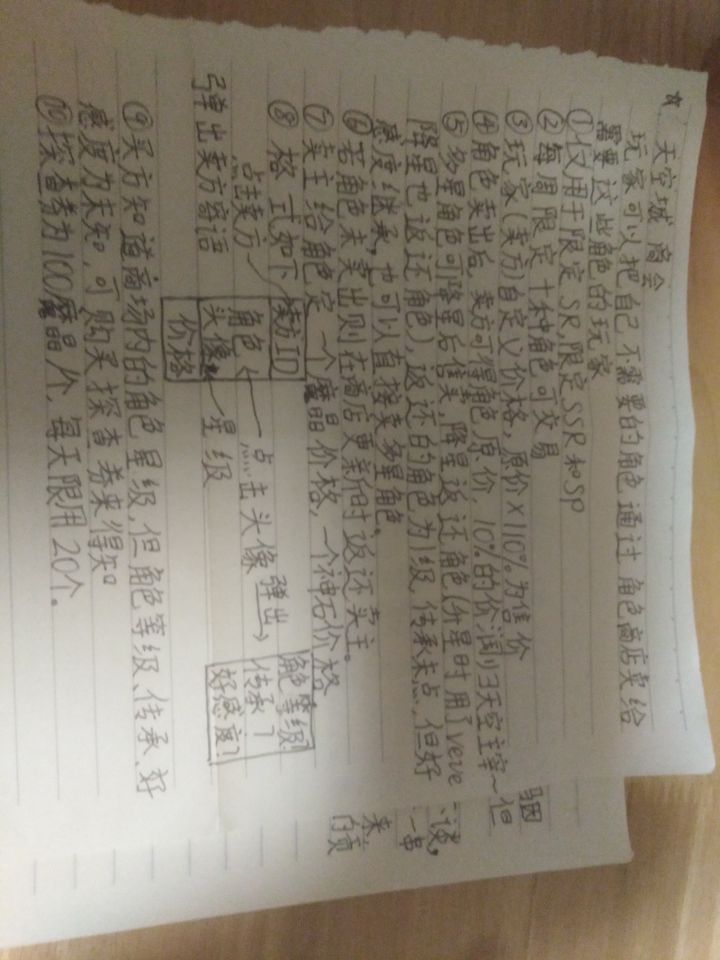 天空城商会
玩家可以把自己不需要的角色通过角色商店卖给
需要这些角色的玩家
①仅用于限定SR、限定SSR和SP
②每周限定十种角色可交易
③玩家(卖方)自定义价格,原价×110%为售价
④角色卖出后,卖方可得角色原价,10%的价润归天空主宰~
⑤多星角色可降星后售卖,降星返还角色(升星时用了veve
降星也返还角色),返还的角色为1级,传承未点,但好
感度继承,也可以直接卖多星角色。
⑥若角色未卖出则在商店更新时返还卖主。
⑦卖主给角色定一个魔晶价格,一个神石价格
⑧格式如下
卖方ID
角色
头像
价格
点击卖方
弹出卖方寄语
点击头像弹出→
星级
角色等级?
传承?
好感度?
⑨买方知道商场内的角色星级,但角色等级、传承、好
感度为未知,可购买探查券来得知
⑩探查券为100魔晶/个,每天限用20个。
但
谈,
一串
来